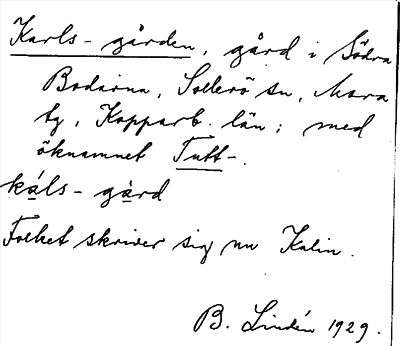 Karls-gården, gård i Södra
Bodarna, Sollerö sn, Mora
tg, Kopparb. län; med
öknamnet Tutt-.
káls-gàrd
Folket skriver sig nu Kalin.
B. Lindén 1929.